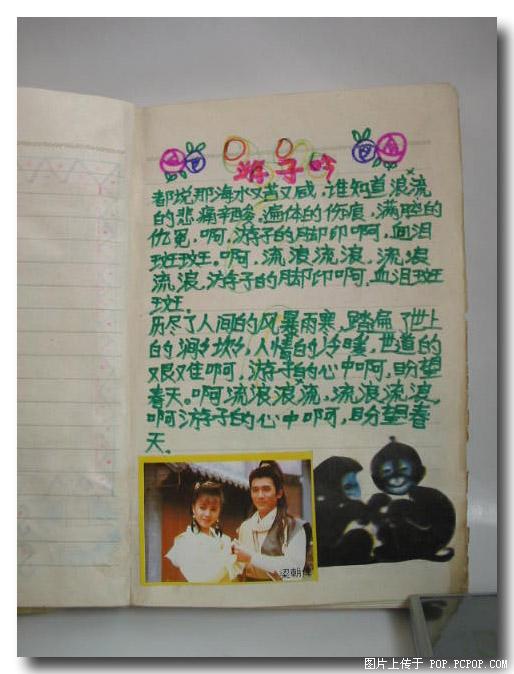 游子吟
都说那海水又苦又咸，谁知道浪流
的悲痛辛酸、遍体的伤痕，满腔的
仇冤。啊，游子的脚印啊，血泪
斑斑。啊，流浪流浪，流浪
流浪，游子的脚印啊，血泪斑
斑。
历尽了人间的风暴雨寒，踏遍了世上
的沟沟坎坎，人情的冷暖，世道的
艰难啊，游子的心中啊，盼望
春天。啊流浪浪流，流浪流浪，
啊游子的心中啊，盼望春
天。
梁朝伟
图片上传于 POP.PCPOP.COM